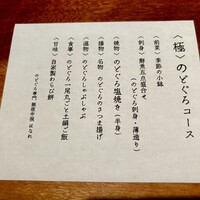 〈極〉のどぐろコース
〈前菜〉季節の小鉢
〈刺身〉鮮魚五点盛合せ
（のどぐろ刺身・薄造り）
〈焼物〉のどぐろ塩焼き（半身）
〈揚物〉名物 のどぐろのさつま揚げ
〈温物〉のどぐろしゃぶしゃぶ
〈食事〉のどぐろ一尾丸ごと土鍋ご飯
〈甘味〉自家製わらび餅
のどぐろ専門 銀座中俣 はなれ